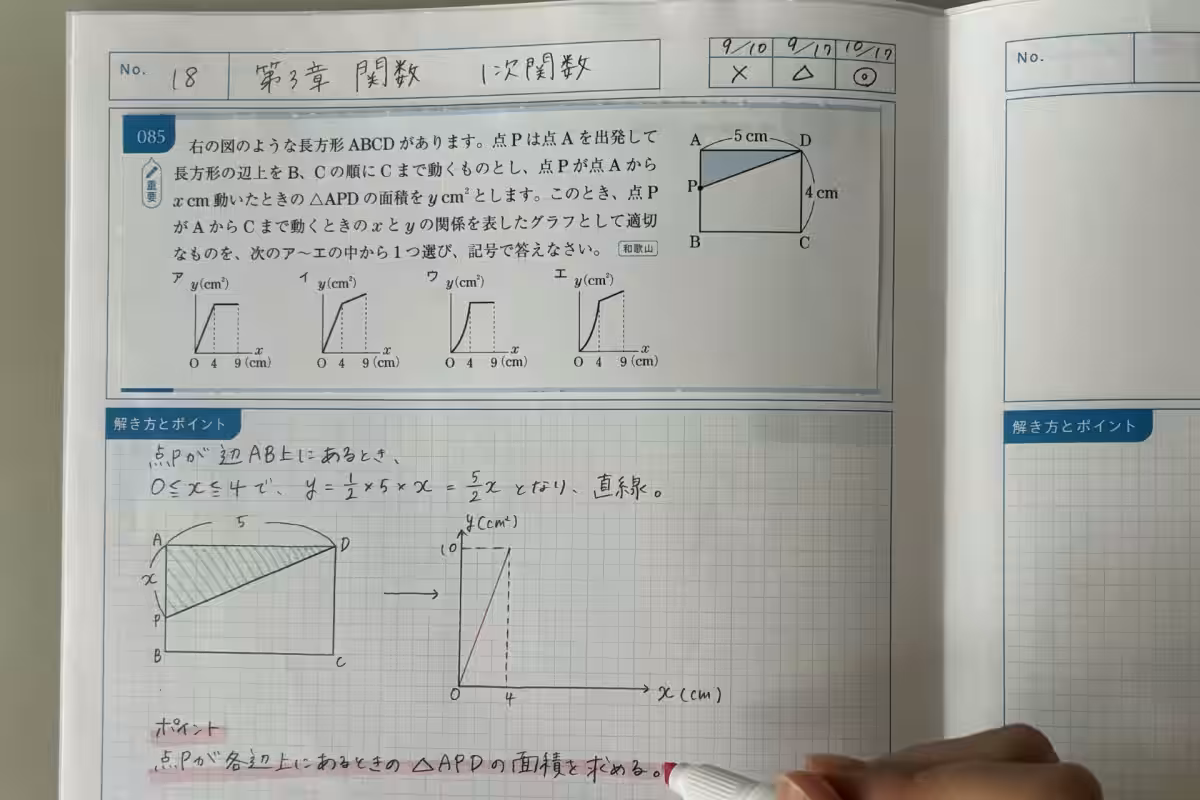 No. 18 第3章 関数 1次関数
9/10 9/17 10/17
× △ ◎
085
重要
右の図のような長方形ABCDがあります。点Pは点Aを出発して
長方形の辺上をB、Cの順にCまで動くものとし、点Pが点Aから
x cm動いたときの△APDの面積をy cm²とします。このとき、点P
がAからCまで動くときのxとyの関係を表したグラフとして適切
なものを、次のア〜エの中から1つ選び、記号で答えなさい。 和歌山
A 5 cm D
P 4 cm
B C
ア y(cm²) イ y(cm²) ウ y(cm²) エ y(cm²)
x x x x
O 4 9(cm) O 4 9(cm) O 4 9(cm) O 4 9(cm)
解き方とポイント
点Pが辺AB上にあるとき、
0≦x≦4で、y=1/2×5×x=5/2xとなり、直線。
5
A D
x
P
B C
y(cm²)
10
O 4 x(cm)
ポイント
点Pが各辺上にあるときの△APDの面積を求める。
No.
解き方とポイント